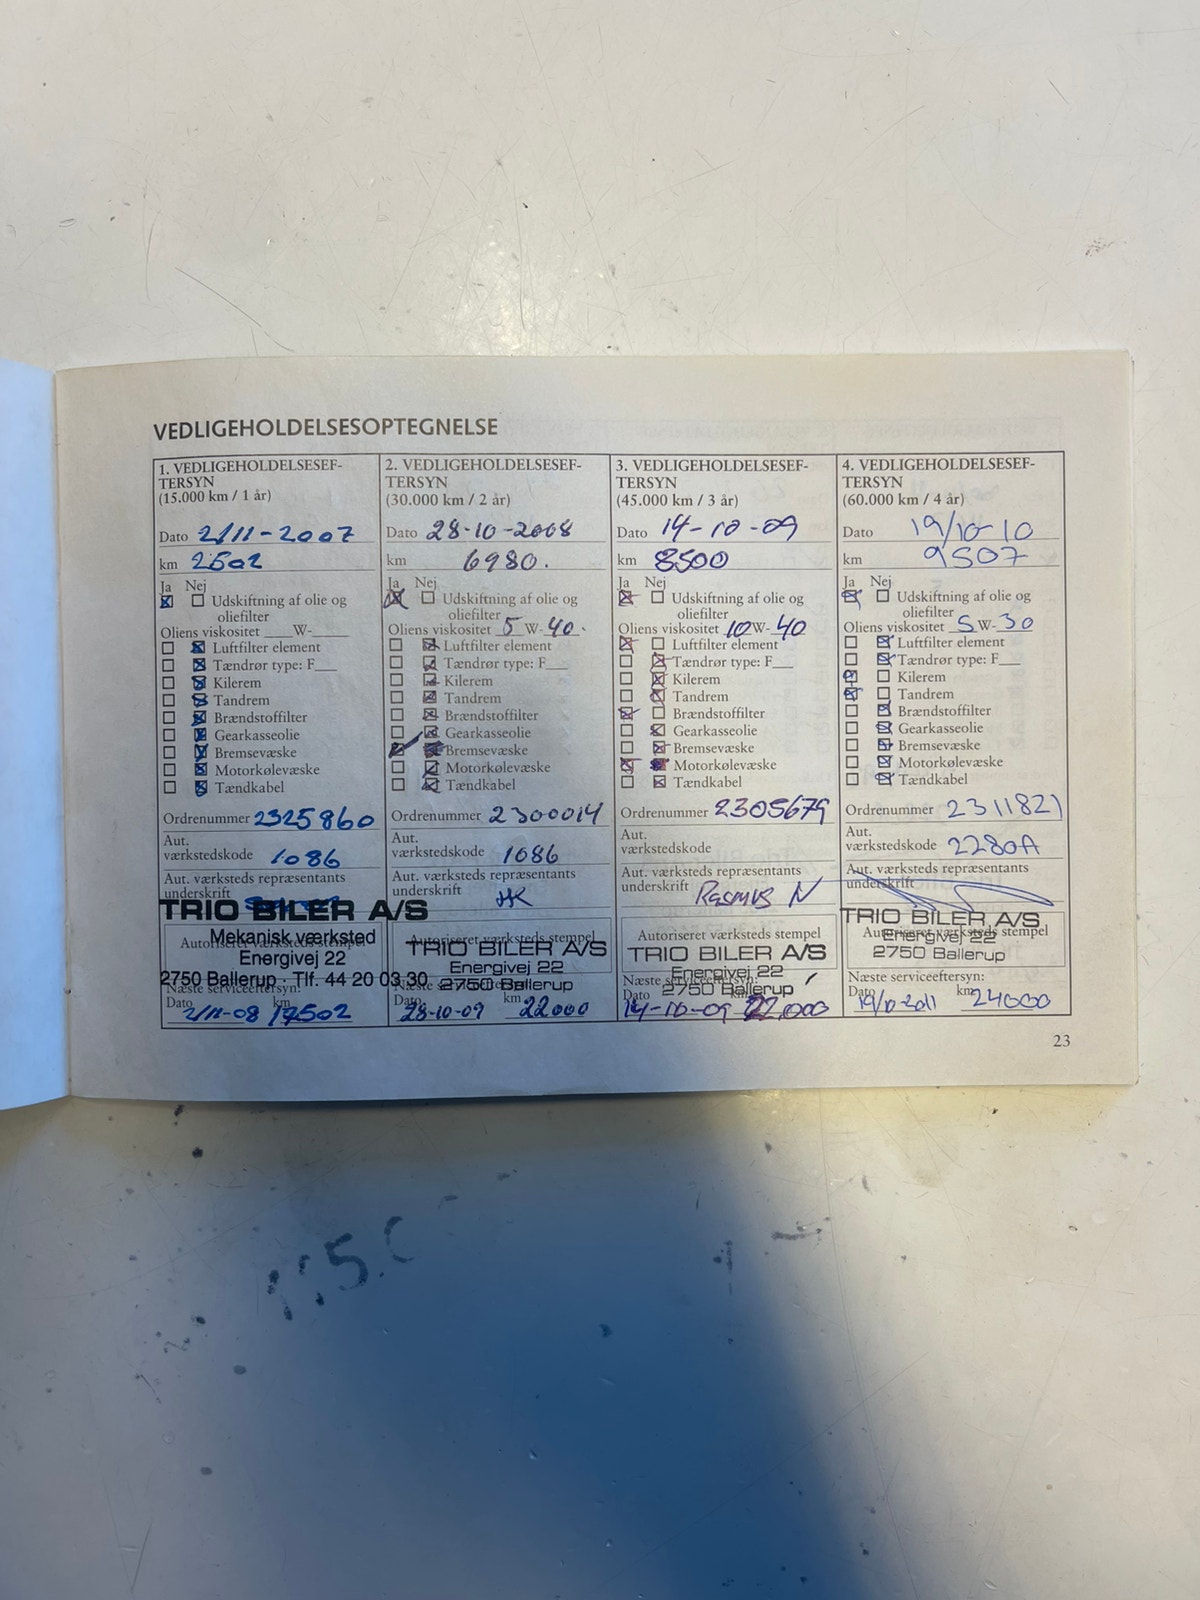 VEDLIGEHOLDELSESOPTEGNELSE
1. VEDLIGEHOLDELSESEF-
TERSYN
(15.000 km / 1 år)
Dato 2/11-2007
km 2502
Ja Nej
Udskiftning af olie og
oliefilter
Oliens viskositet ___W-____
Luftfilter element
Tændrør type: F___
Kilerem
Tandrem
Brændstoffilter
Gearkasseolie
Bremsevæske
Motorkølevæske
Tændkabel
Ordrenummer 2325860
Aut.
værkstedskode 1086
Aut. værksteds repræsentants
underskrift
TRIO BILER A/S
Autoriseret værksteds stempel
Mekanisk værksted
Energivej 22
2750 Ballerup - Tlf. 44 20 03 30
Næste serviceeftersyn:
Dato km
2/11-08 17502
2. VEDLIGEHOLDELSESEF-
TERSYN
(30.000 km / 2 år)
Dato 28-10-2008
km 6980.
Ja Nej
Udskiftning af olie og
oliefilter
Oliens viskositet 5 W-40.
Luftfilter element
Tændrør type: F___
Kilerem
Tandrem
Brændstoffilter
Gearkasseolie
Bremsevæske
Motorkølevæske
Tændkabel
Ordrenummer 2300014
Aut.
værkstedskode 1086
Aut. værksteds repræsentants
underskrift
Autoriseret værksteds stempel
TRIO BILER A/S
Energivej 22
2750 Ballerup
Næste serviceeftersyn:
Dato km
28-10-09 22000
3. VEDLIGEHOLDELSESEF-
TERSYN
(45.000 km / 3 år)
Dato 14-10-09
km 8500
Ja Nej
Udskiftning af olie og
oliefilter
Oliens viskositet 10W-40
Luftfilter element
Tændrør type: F___
Kilerem
Tandrem
Brændstoffilter
Gearkasseolie
Bremsevæske
Motorkølevæske
Tændkabel
Ordrenummer 2305679
Aut.
værkstedskode
Aut. værksteds repræsentants
underskrift Rasmus N
Autoriseret værksteds stempel
TRIO BILER A/S
Energivej 22
2750 Ballerup
Næste serviceeftersyn:
Dato km
14-10-09 22.000
4. VEDLIGEHOLDELSESEF-
TERSYN
(60.000 km / 4 år)
Dato 19/10-10
km 9507
Ja Nej
Udskiftning af olie og
oliefilter
Oliens viskositet 5 W-30
Luftfilter element
Tændrør type: F___
Kilerem
Tandrem
Brændstoffilter
Gearkasseolie
Bremsevæske
Motorkølevæske
Tændkabel
Ordrenummer 2311821
Aut.
værkstedskode 2280A
Aut. værksteds repræsentants
underskrift
TRIO BILER A/S
Autoriseret værksteds stempel
Energivej 22
2750 Ballerup
Næste serviceeftersyn:
Dato km
19/10-2011 24000
23